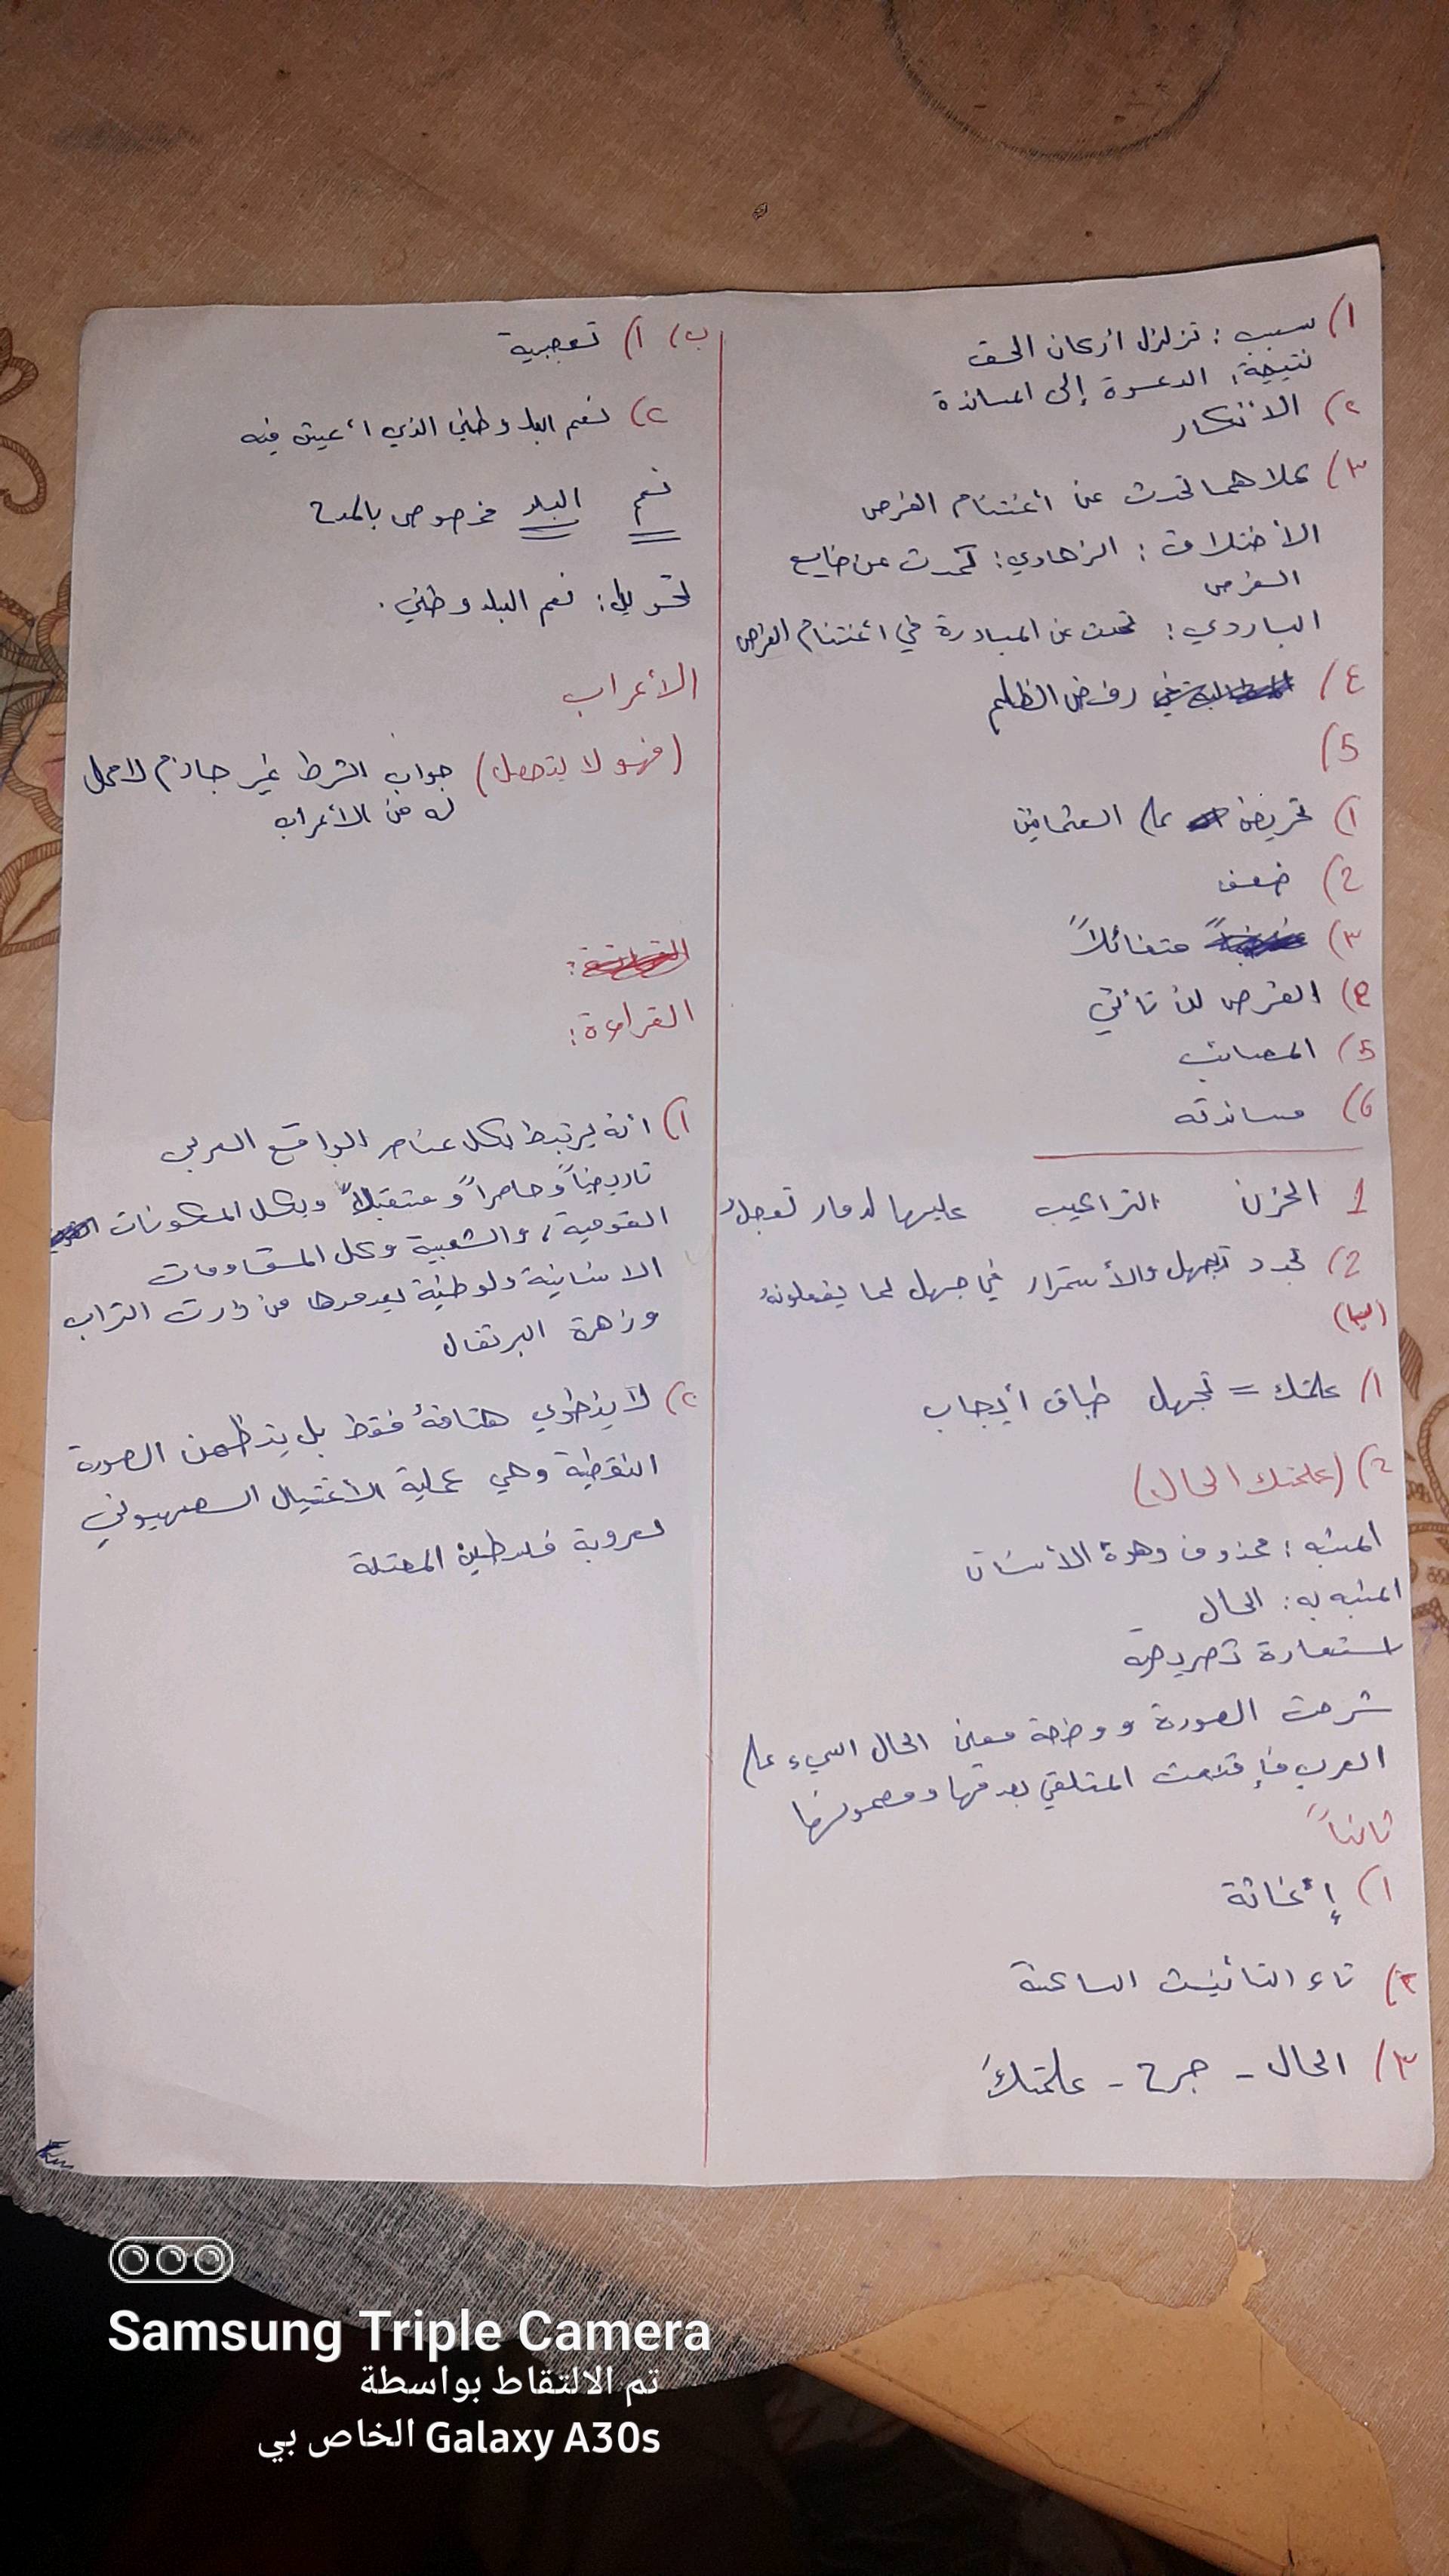 ١) سبب : تزلزل أركان الحق
نتيجة: الدعوة إلى المساندة
٢) الانكار
٣) كلاهما تحدث عن أغتنام الفرص
الأختلاف : الزهاوي: تحدث عن ضايع
الفرص
البارودي : تحدث عن المبادرة في اغتنام الفرص
٤) رفض الظلم
5)
١) تحريض على العثمانين
2) ضعف
٣) متفائلاً
٤) الفرص لن تأتي
5) المصائب
6) مساندته
1 الحزن التراكيب عليها لدمار تعجل
2) تجدد تجهل والأستمرار في جهل لما يفعلونه
١) علمتك = تجهل طباق أيجاب
٢) (علمتك الحال)
المشبه : محذوف وهوة الأنسان
المشبه به : الحال
استعارة تصريحة
شرحت الصورة ووضحة معنى الحال السيء على
العرب فإقنعت المتلقي بصدقها ومضمونها
ثانياً
١) إغاثة
٢) تاء التأنيث الساكنة
٣) الحال - جرح - علمتكَ
ب) ١) تعجبية
٢) نعم البلد وطني الذي أعيش فيه
نعم البلد مخصوص بالمدح
تحويل : نعم البلد وطني .
الأعراب
(فهو لا يتحصل) جواب الشرط غير جازم لامحل
له من الأعراب
القراءة :
١) أنه يرتبط بكل عناصر الواقع العربي
تاريخياً وحاصراً و متقبلاً وبكل المكونات
القومية، والشعبية وكل المقاومات
الانسانية ولوطنية بعدمدها من ذارت التراب
وزهرة البرتقال
٢) لا ينطوي هتافهُ فقط بل يتظمن الصورة
النقطية وهي عملية الأغتيال الصهيوني
لعروبة فلسطين المحتلة
Samsung Triple Camera
تم الالتقاط بواسطة
Galaxy A30s الخاص بي